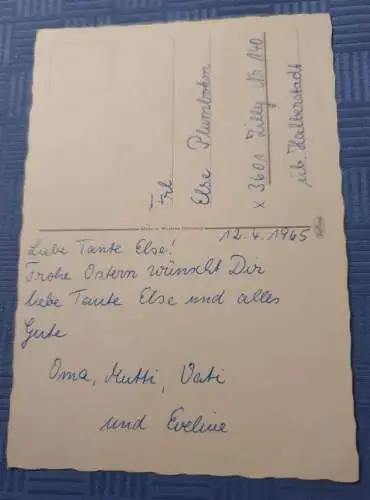 Liebe Tante Else!
Frohe Ostern wünscht Dir
liebe Tante Else und alles
Gute
Oma, Mutti, Vati
und Eveline
12.4.1965
Frl.
Else Plumbohm
x 3601 Zilly Nr 140
üb. Halberstadt